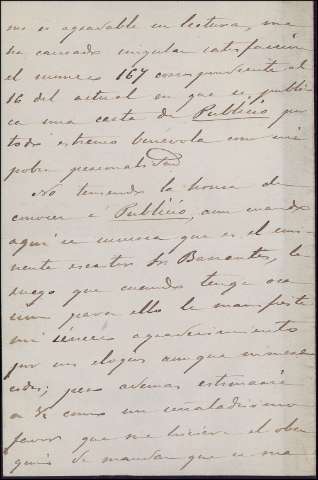 me es agradable su lectura, me
ha causado singular satisfacción
el numero 167 correspondiente al
16 del actual en que se publi
ca una carta de Publicio por
todo estremo benévola con mi
pobre personalidad
No teniendo la honra de
conocer á Publicio, aun cuando
aqui se murmura que es el emi
nente escritor Sr Barrantes, le
ruego que cuando tenga oca
sion para ello le manifieste
mi sincero agradecimiento
por sus elogios aunque inmere
cidos; pero ademas estimaré
a V. como un señaladísimo
favor que me hiciera el obse
quio de mandar que se me